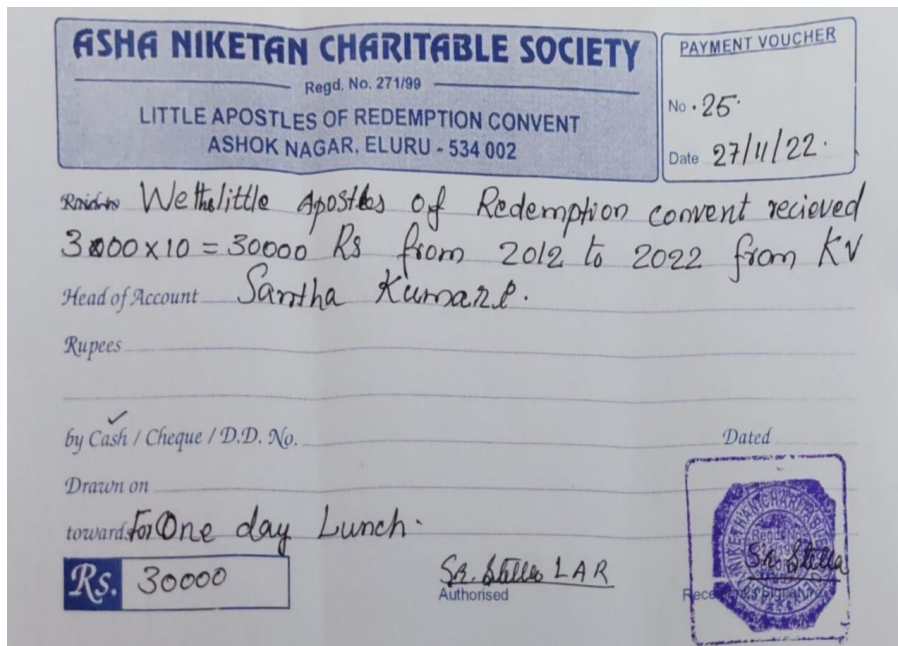 ASHA NIKETAN CHARITABLE SOCIETY
Regd. No. 271/99
LITTLE APOSTLES OF REDEMPTION CONVENT
ASHOK NAGAR, ELURU - 534 002
PAYMENT VOUCHER
No . 25.
Date 27/11/22.
We the little Apostles of Redemption convent recieved
3000 x 10 = 30000 Rs from 2012 to 2022 from KV
Head of Account Santha Kumari.
Rupees
by Cash / Cheque / D.D. No. Dated
Drawn on
towards For One day Lunch.
Rs. 30000
Sr. Stella LAR
Authorised
Sr. Stella